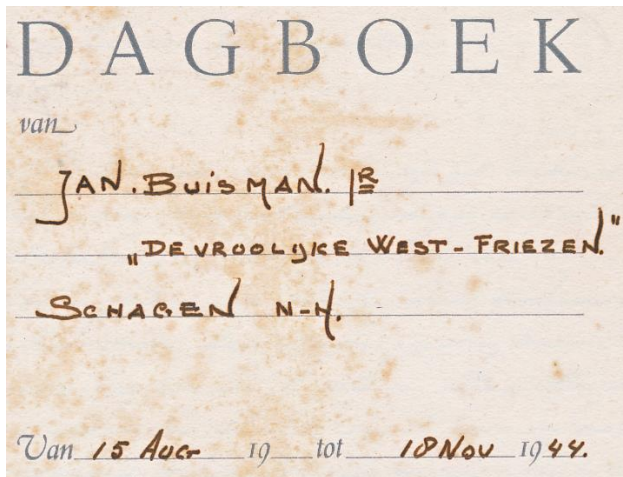 DAGBOEK
van
JAN. BUISMAN. JR
„DE VROOLIJKE WEST-FRIEZEN."
SCHAGEN N-H.
Van 15 Aug 19 tot 18 Nov 1944.